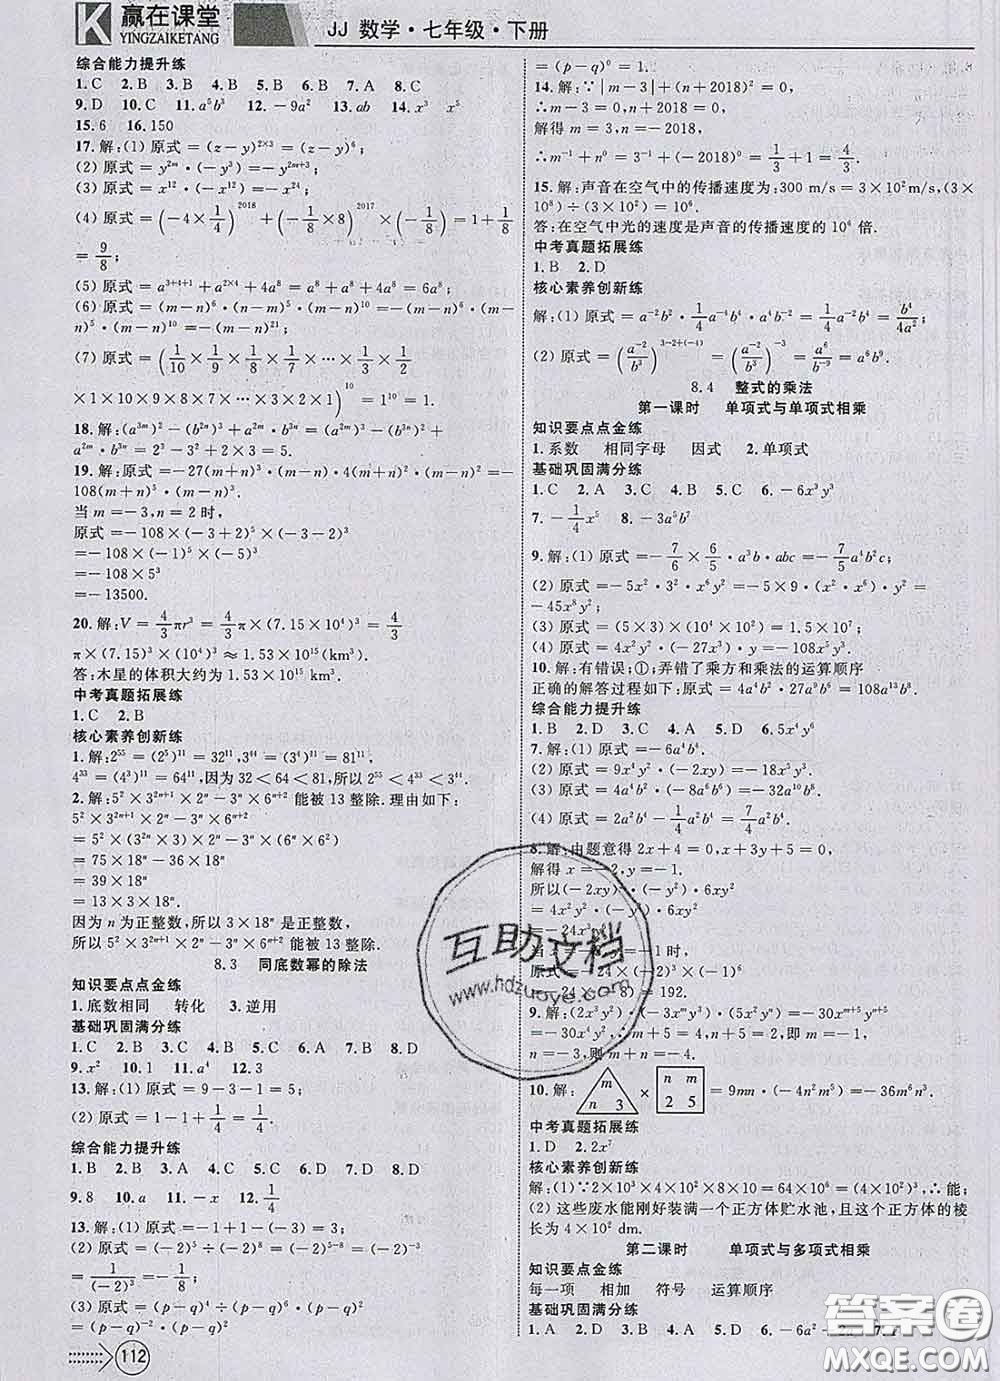 赢在课堂
YINGZAIKETANG
JJ 数学·七年级·下册
综合能力提升练
1.C 2.B 3.B 4.B 5.B 6.B 7.A 8.C
9.D 10.C 11.a⁵b³ 12.－9a² 13.ab 14.x³ x⁵
15.6 16.150
17.解:(1)原式＝(z－y)²ˣ³＝(z－y)⁶;
(2)原式＝y²ᵐ·(－y³)＝－y²ᵐ⁺³;
(3)原式＝x¹²·(－x¹²)＝－x²⁴;
(4)原式＝(－4×1/4)²⁰¹⁸＋(－1/8×8)²⁰¹⁷×(－1/8)＝1＋1/8
＝9/8;
(5)原式＝a³⁺⁴⁺¹＋a²ˣ⁴＋4a⁸＝a⁸＋a⁸＋4a⁸＝6a⁸;
(6)原式＝(m－n)⁶·(n－m)⁵·(m－n)¹⁰＝－(m－
n)⁵·(m－n)¹⁰＝－(m－n)²¹;
(7)原式＝(1/10×1/9×1/8×1/7×…×1/3×1/2
×1×10×9×8×7×…×3×2)¹⁰＝1¹⁰＝1.
18.解:(a³ᵐ)²－(b²ⁿ)³＋a²ᵐ·b³ⁿ＝(a²ᵐ)³－(b³ⁿ)²＋
a²ᵐ·b³ⁿ＝2³－3²＋2×3＝5.
19.解:原式＝－27(m＋n)³·(m－n)·4(m＋n)²＝－
108(m＋n)⁵·(m－n).
当m＝－3,n＝2时,
原式＝－108×(－3＋2)⁵×(－3－2)³
＝－108×(－1)⁵×(－5)³
＝－108×5³
＝－13500.
20.解:V＝4/3πr³＝4/3π×(7.15×10⁴)³＝4/3
π×(7.15)³×(10⁴)³≈1.53×10¹⁵(km³).
答:木星的体积大约为1.53×10¹⁵km³.
中考真题拓展练
1.C 2.B
核心素养创新练
1.解:2⁵⁵＝(2⁵)¹¹＝32¹¹,3⁴⁴＝(3⁴)¹¹＝81¹¹,
4³³＝(4³)¹¹＝64¹¹,因为32＜64＜81,所以2⁵⁵＜4³³＜3⁴⁴.
2.解:5²×3²ⁿ⁺¹×2ⁿ－3ⁿ×6ⁿ⁺²能被13整除.理由如下:
5²×3²ⁿ⁺¹×2ⁿ－3ⁿ×6ⁿ⁺²
＝5²×(3²ⁿ×3)×2ⁿ－3ⁿ×(6ⁿ×6²)
＝75×18ⁿ－36×18ⁿ
＝39×18ⁿ
＝13×3×18ⁿ.
因为n为正整数,所以3×18ⁿ是正整数.
所以5²×3²ⁿ⁺¹×2ⁿ－3ⁿ×6ⁿ⁺²能被13整除.
8.3 同底数幂的除法
知识要点点金练
1.底数相同 转化 3.逆用
基础巩固满分练
1.C 2.B 3.C 4.C 5.A 6.A 7.B 8.D
9.x² 10.1 11.a⁴ 12.3
13.解:(1)原式＝9－3－1＝5;
(2)原式＝1－1＋1/4＝1/4.
综合能力提升练
1.B 2.B 3.A 4.C 5.C 6.D 7.D 8.D
9.8 10.a 11.－x 12.1/4
13.解:(1)原式＝－1＋1－(－3)＝3;
(2)原式＝(－2)⁵÷(－2)⁸＝(－2)⁵⁻⁸＝(－2)⁻³
＝1/(－2)³＝－1/8;
(3)原式＝(p－q)⁴÷(p－q)³·(p－q)²
＝(p－q)·(p－q)⁻²
112
＝(p－q)⁰＝1.
14.解:∵|m－3|＋(n＋2018)²＝0,
∴m－3＝0,n＋2018＝0,
解得m＝3,n＝－2018,
∴m⁻¹＋n⁰＝3⁻¹＋(－2018)⁰＝1/3＋1＝4/3.
15.解:声音在空气中的传播速度为:300 m/s＝3×10²m/s,(3×
10⁸)÷(3×10²)＝10⁶.
答:在空气中光的速度是声音的传播速度的10⁶倍.
中考真题拓展练
1.B 2.D
核心素养创新练
解:(1)原式＝a⁻²b²·1/4a⁻⁴b⁴·4a⁴b⁻²＝1/4a⁻²b⁴＝b⁴/4a²;
(2)原式＝(a⁻²/b³)³⁻²⁺⁽⁻⁴⁾＝(a⁻²/b³)⁻³＝a⁶/b⁻⁹＝a⁶b⁹.
8.4 整式的乘法
第一课时 单项式与单项式相乘
知识要点点金练
1.系数 相同字母 因式 2.单项式
基础巩固满分练
1.C 2.A 3.C 4.C 5.C 6.－6x³y³
7.－1/4x⁵ 8.－3a⁵b⁷
9.解:(1)原式＝－7/6×6/5·a³b·abc＝－7/5a⁴b²c;
(2)原式＝－5x²·3²·x⁶y²＝－5×9·(x²·x⁶)y²＝
－45x⁸y²;
(3)原式＝(5×3)×(10⁴×10²)＝1.5×10⁷;
(4)原式＝4x²y²·(－xy)＝－4x³y³.
10.解:有错误;①;弄错了乘方和乘法的运算顺序
正确的解答过程如下:原式＝4a⁴b²·27a⁹b⁶＝108a¹³b⁸.
综合能力提升练
1.B 2.D 3.C 4.A 5.D 6.5x⁴y⁶
7.解:(1)原式＝－6a⁴b⁴.
(2)原式＝9x⁴y²·(－2xy)＝－18x⁵y³.
(3)原式＝4a⁴b⁴·(－8a⁶b³)＝－32a¹⁰b⁷.
(4)原式＝2a²b²－1/4a²b²＝7/4a²b².
8.解:由题意得2x＋4＝0,x＋3y＋5＝0,
解得x＝－2,y＝－1.
所以(－2xy)²·(－y²)·6xy²
＝4x²y²·(－y²)·6xy²
＝－24x³y⁶.
原式＝－24×(－2)³×(－1)⁶
＝－24×(－8)＝192.
9.解:(2x²y³)·(－3xᵐy³)·(5x²yⁿ)＝－30xᵐ⁺⁴yⁿ⁺⁶
＝－30x⁴y²,∴m＋5＝4,n＋5＝2,即m＝－1,
n＝－3,则m＋n＝－4.
10.解: m n 3 × n m 2 5 ＝9mn·(－4n²m⁵)＝－36m⁶n³.
中考真题拓展练
1.D 2.2x⁷
核心素养创新练
解:(1)∵2×10³×4×10²×8×10＝64×10⁶＝(4×10²)³,∴能;
(2)这些废水能刚好装满一个正方体贮水池,且这个正方体的棱
长为4×10²dm.
第二课时 单项式与多项式相乘
知识要点金练
每一项 相加 符号 运算顺序
基础巩固满分练
1.A 2.A 3.D 4.A 5.D
互助文档
www.hdzuoye.com
答案圈
MXQE.COM